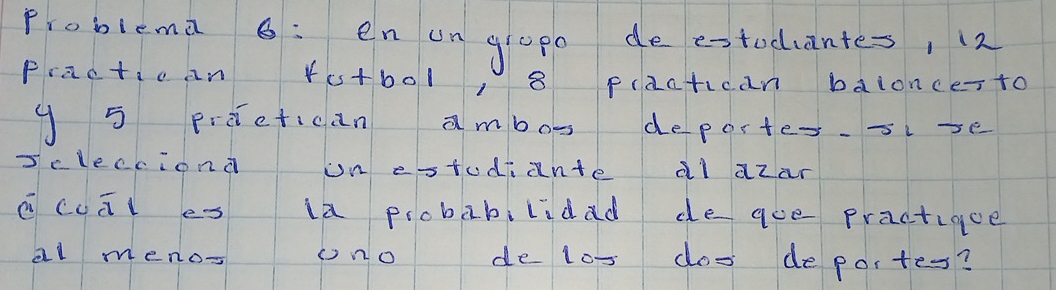 Problema 6: en un grupo de estudiantes, 12
practican futbol, 8 practican baloncesto
y 5 práctican ambos deportes. si se
selecciona un estudiante al azar
¿cuál es la probabilidad de que practique
al menos uno de los dos deportes?